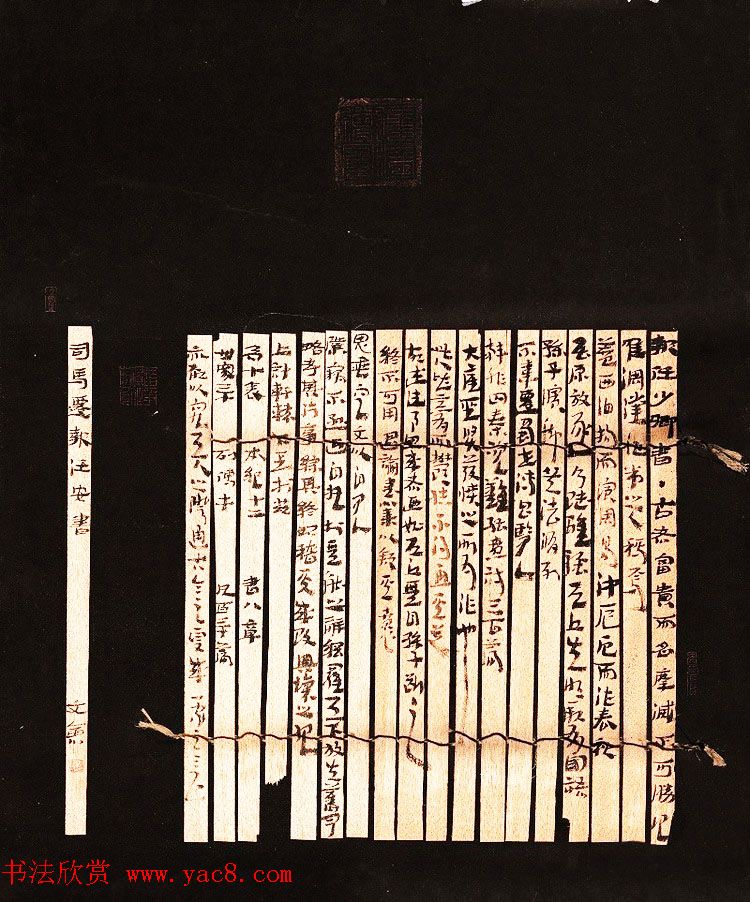 報任少卿書·古者富貴而名摩滅不可勝記
蓋西伯拘而演周易 仲尼厄而作春秋
屈原放逐乃賦離騷左丘失明厥有國語
孫子臏腳兵法修列
不韋遷蜀世傳呂覽
韓非囚秦說難孤憤詩三百篇
大底聖賢發憤之所爲作也
此人皆意有所鬱結不得通其道
故述往事思來者及如左丘無目孫子斷足
終不可用退論書策以舒其憤
思垂空文以自見
僕竊不遜近自托於無能之辭網羅天下放失舊聞
略考其行事綜其終始稽其成敗興壞之紀
上計軒轅下至於茲
爲十表 本紀十二 書八章
世家三十 列傳七十 凡百三十篇
亦欲以究天人之際通古今之變成一家之言
司馬遷報任安書
书法欣赏 www.yac8.com